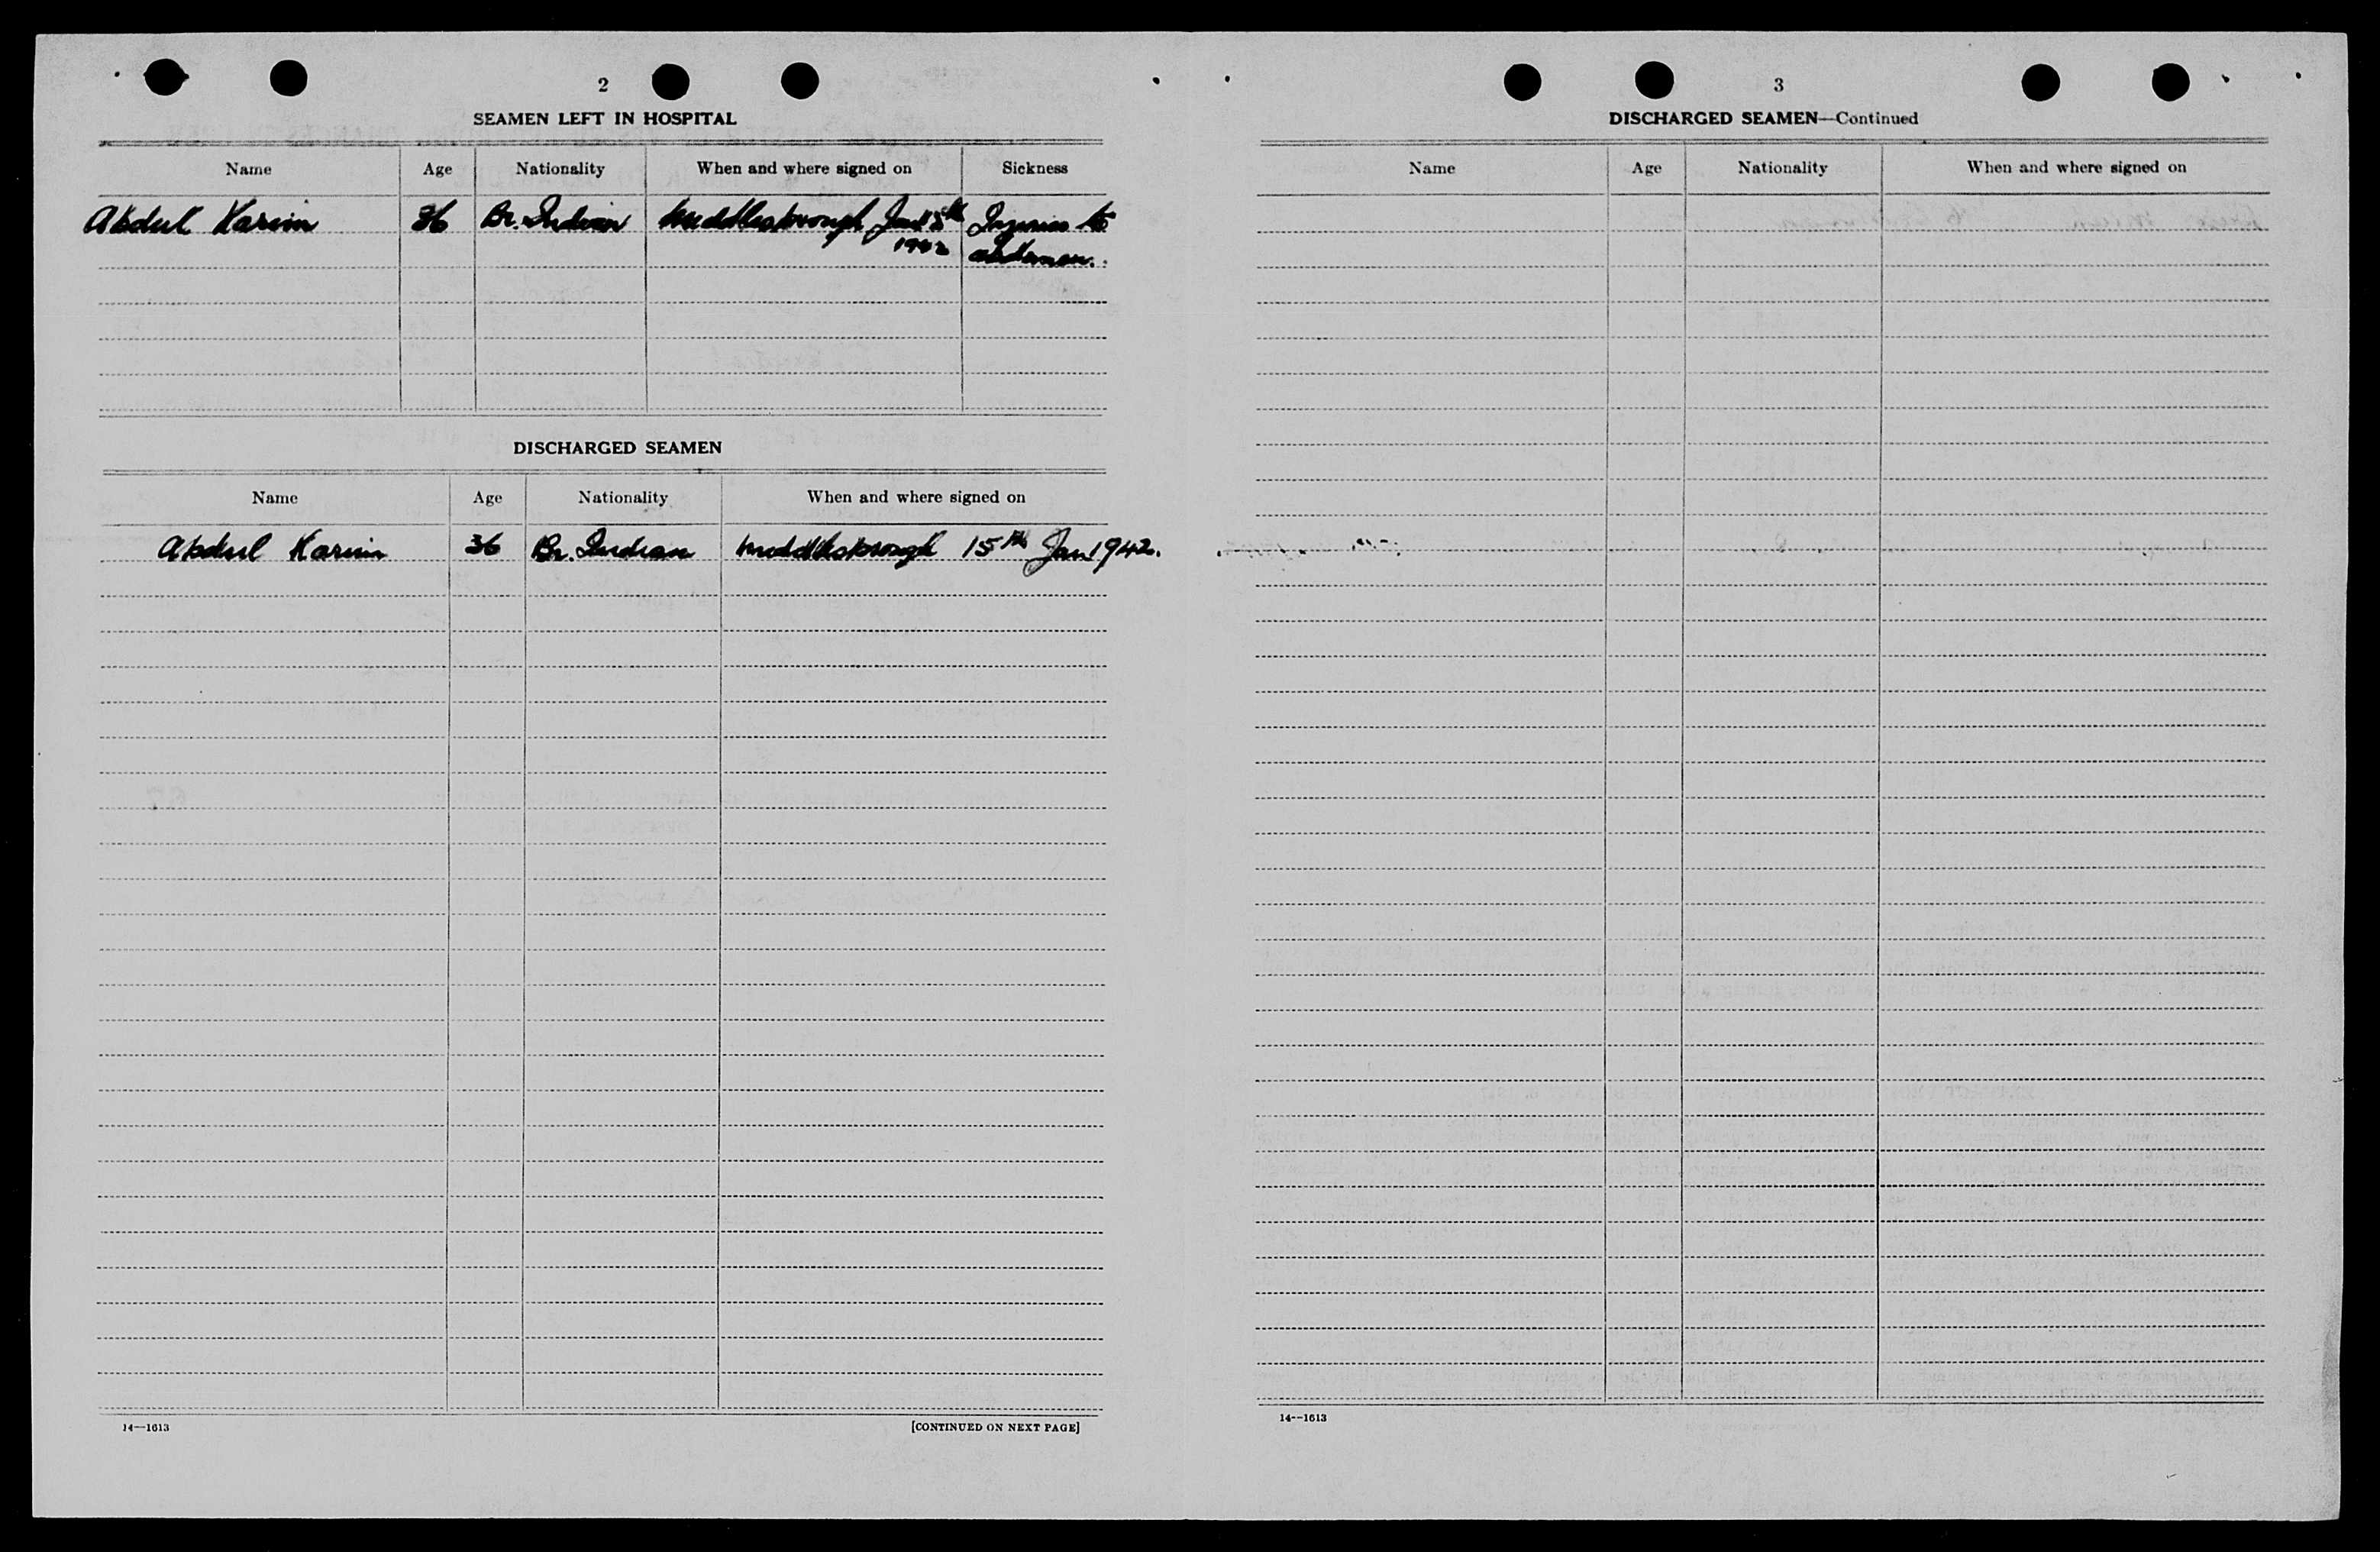 2
SEAMEN LEFT IN HOSPITAL
Name Age Nationality When and where signed on Sickness
Abdul Karim 36 Br. Indian Middlesbrough Jan 15th Injuries to
1942 abdomen.
DISCHARGED SEAMEN
Name Age Nationality When and where signed on
Abdul Karim 36 Br. Indian Middlesbrough 15th Jan 1942.
14—1613 [CONTINUED ON NEXT PAGE]
3
DISCHARGED SEAMEN—Continued
Name Age Nationality When and where signed on
14--1613